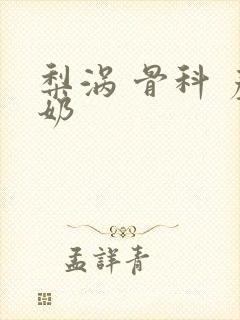 梨涡 骨科
奶
孟詳青